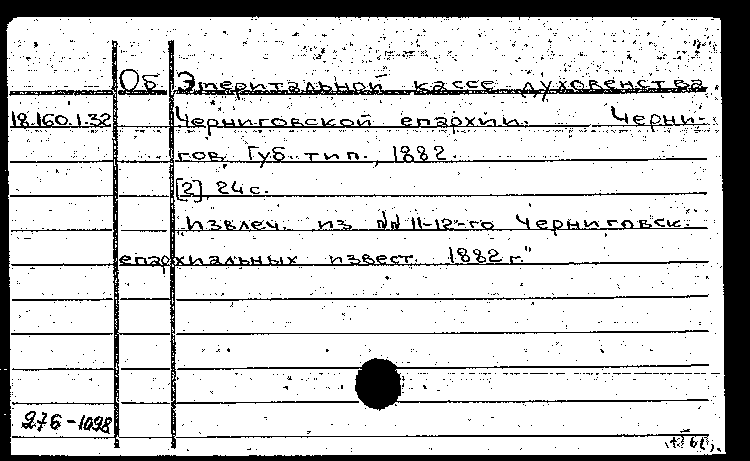 Об Эмеритальной кассе духовенства
18.160.1.32 Черниговской епархии. Черни-
гов, Губ. тип., 1882.
[2], 24 с.
"Извлеч. из №№ 11-12-го Черниговск.
епархиальных извест. 1882 г."
276-1098